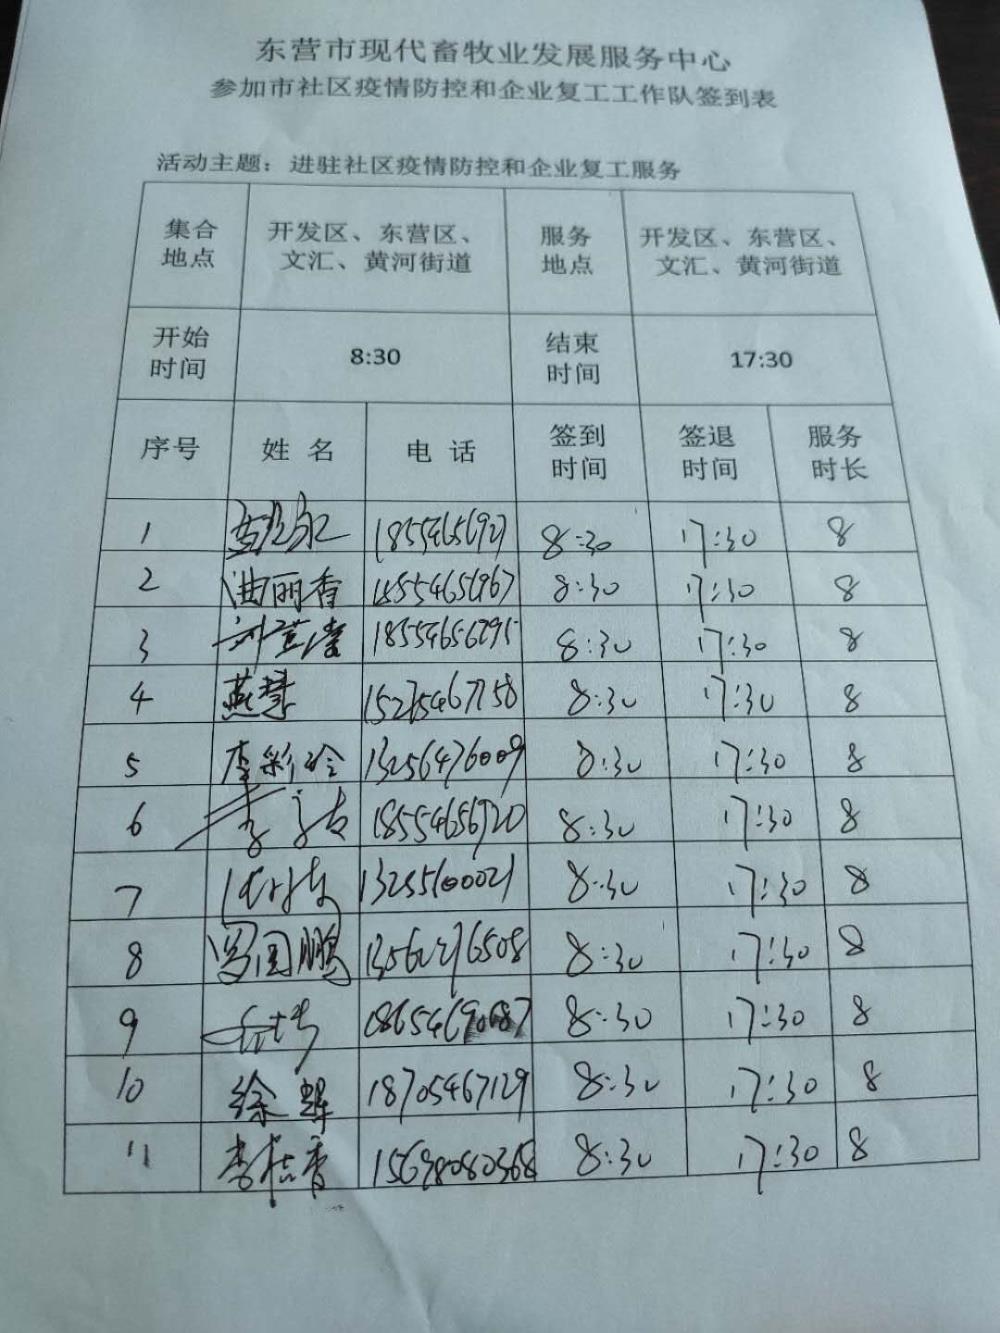 东营市现代畜牧业发展服务中心
参加市社区疫情防控和企业复工工作队签到表
活动主题：进驻社区疫情防控和企业复工服务
集合地点 开发区、东营区、文汇、黄河街道 服务地点 开发区、东营区、文汇、黄河街道
开始时间 8:30 结束时间 17:30
序号 姓名 电话 签到时间 签退时间 服务时长
1 8:30 17:30 8
2 曲丽香 8:30 17:30 8
3 8:30 17:30 8
4 燕慧 8:30 17:30 8
5 李彩玲 13256476009 8:30 17:30 8
6 18554656720 8:30 17:30 8
7 13255600021 8:30 17:30 8
8 国鹏 8:30 17:30 8
9 8:30 17:30 8
10 徐辉 18705467129 8:30 17:30 8
11 15698080368 8:30 17:30 8